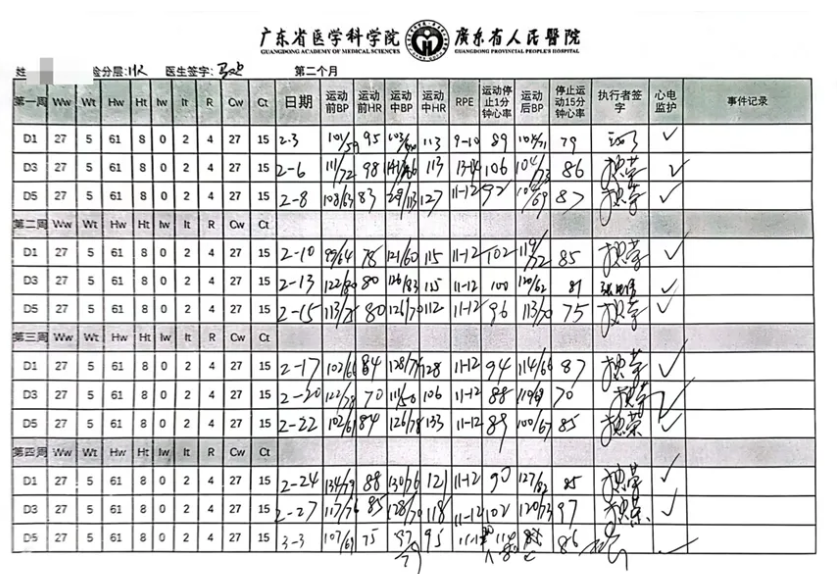 广东省医学科学院 廣東省人民醫院
GUANGDONG ACADEMY OF MEDICAL SCIENCES GUANGDONG PROVINCIAL PEOPLE'S HOSPITAL
姓 险分层: 医生签字: 第二个月
第一周 Ww Wt Hw Ht Iw It R Cw Ct 日期 运动前BP 运动前HR 运动中BP 运动中HR RPE 运动停止1分钟心率 运动后BP 停止运动15分钟心率 执行者签字 心电监护 事件记录
D1 27 5 61 8 0 2 4 27 15 2.3 101/59 95 113 9-10 89 79 ✓
D3 27 5 61 8 0 2 4 27 15 2-6 111/72 98 113 13-14 106 104/73 86 ✓
D5 27 5 61 8 0 2 4 27 15 2-8 108/63 83 127 11-12 92 87 ✓
第二周 Ww Wt Hw Ht Iw It R Cw Ct
D1 27 5 61 8 0 2 4 27 15 2-10 99/64 78 121/60 115 11-12 102 119/72 85 ✓
D3 27 5 61 8 0 2 4 27 15 2-13 122/80 80 126/83 115 11-12 100 120/62 81 ✓
D5 27 5 61 8 0 2 4 27 15 2-15 113/75 80 126/70 112 11-12 96 113/70 75 ✓
第三周 Ww Wt Hw Ht Iw It R Cw Ct
D1 27 5 61 8 0 2 4 27 15 2-17 102/66 84 128/74 128 11-12 94 114/66 87 ✓
D3 27 5 61 8 0 2 4 27 15 2-20 122/78 70 111/50 106 11-12 88 119/69 70 ✓
D5 27 5 61 8 0 2 4 27 15 2-22 102/61 84 126/78 133 11-12 89 100/67 85 ✓
第四周 Ww Wt Hw Ht Iw It R Cw Ct
D1 27 5 61 8 0 2 4 27 15 2-24 134/79 88 130/76 121 11-12 90 127/82 85 ✓
D3 27 5 61 8 0 2 4 27 15 2-27 117/76 85 128/70 118 11-12 102 120/73 97 ✓
D5 27 5 61 8 0 2 4 27 15 3-3 107/69 75 95 11-12 86 ✓